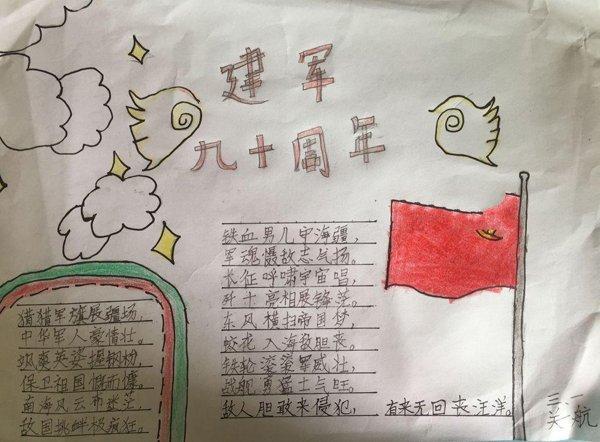 建军
九十周年
铁血男儿守海疆,
军魂慑敌志气扬。
长征呼啸宇宙唱,
歼十亮相展锋芒。
东风横扫帝国梦,
蛟龙入海敌胆丧。
铁轮滚滚军威壮,
战舰勇猛士气旺。
敌人胆敢来侵犯, 有来无回丧汪洋。
猎猎军旗展疆场,
中华军人豪情壮。
飒爽英姿握钢枪,
保卫祖国慨而慷。
南海风云布迷茫,
敌国挑衅极疯狂。
三、一
关航